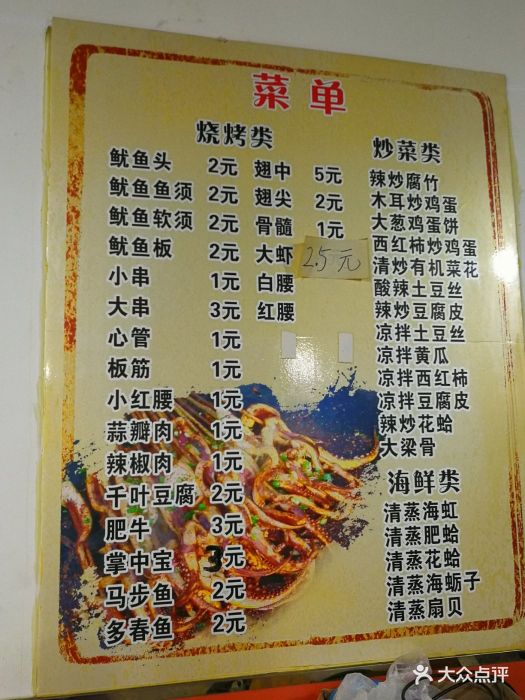 菜单
烧烤类
鱿鱼头 2元
鱿鱼鱼须 2元
鱿鱼软须 2元
鱿鱼板 2元
小串 1元
大串 3元
心管 1元
板筋 1元
小红腰 1元
蒜瓣肉 1元
辣椒肉 1元
千叶豆腐 2元
肥牛 3元
掌中宝 3元
马步鱼 2元
多春鱼 2元
翅中 5元
翅尖 2元
骨髓 1元
大虾 2.5元
白腰
红腰
炒菜类
辣炒腐竹
木耳炒鸡蛋
大葱鸡蛋饼
西红柿炒鸡蛋
清炒有机菜花
酸辣土豆丝
辣炒豆腐皮
凉拌土豆丝
凉拌黄瓜
凉拌西红柿
凉拌豆腐皮
辣炒花蛤
大梁骨
海鲜类
清蒸海虹
清蒸肥蛤
清蒸花蛤
清蒸海蛎子
清蒸扇贝
大众点评